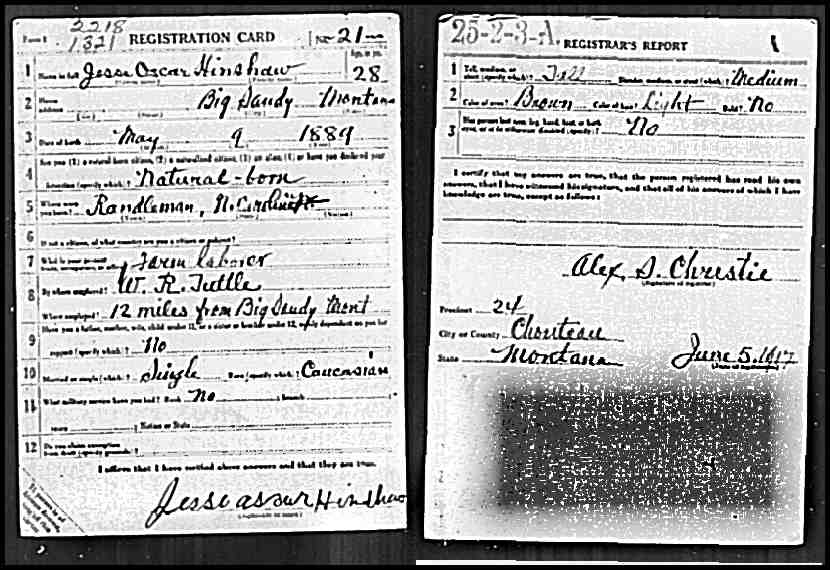 Form 1 2218
1321 REGISTRATION CARD No. 21
1 Name in full Jesse Oscar Hinshaw Age, in yrs. 28
2 Home address Big Sandy Montana
3 Date of birth May 9 1889
4 Are you (1) a natural born citizen, (2) a naturalized citizen, (3) an alien, (4) or have you declared your
intention (specify which)? Natural-born
5 Where were you born? Randleman, N. Carolina
6 If not a citizen, of what country are you a citizen or subject?
7 What is your present trade, occupation, or office? Farm laborer
8 By whom employed? W. R. Tuttle
Where employed? 12 miles from Big Sandy Mont
9 Have you a father, mother, wife, child under 12, or a sister or brother under 12, solely dependent on you for
support (specify which)? No
10 Married or single (which)? Single Race (specify which)? Caucasian
11 What military service have you had? Rank No branch
years Nation or State
12 Do you claim exemption from draft (specify grounds)?
I affirm that I have verified above answers and that they are true.
Jesse ascur Hinshaw
25-2-3-A. REGISTRAR'S REPORT
1 Tall, medium, or short (specify which)? Tall Slender, medium, or stout (which)? Medium
2 Color of eyes? Brown Color of hair? Light Bald? No
3 Has person lost arm, leg, hand, foot, or both eyes, or is he otherwise disabled (specify)? No
I certify that my answers are true, that the person registered has read his own
answers, that I have witnessed his signature, and that all of his answers of which I have
knowledge are true, except as follows:
Alex S. Christie
(Signature of registrar)
Precinct 24
City or County Chouteau
State Montana June 5, 1917
(Date of registration)